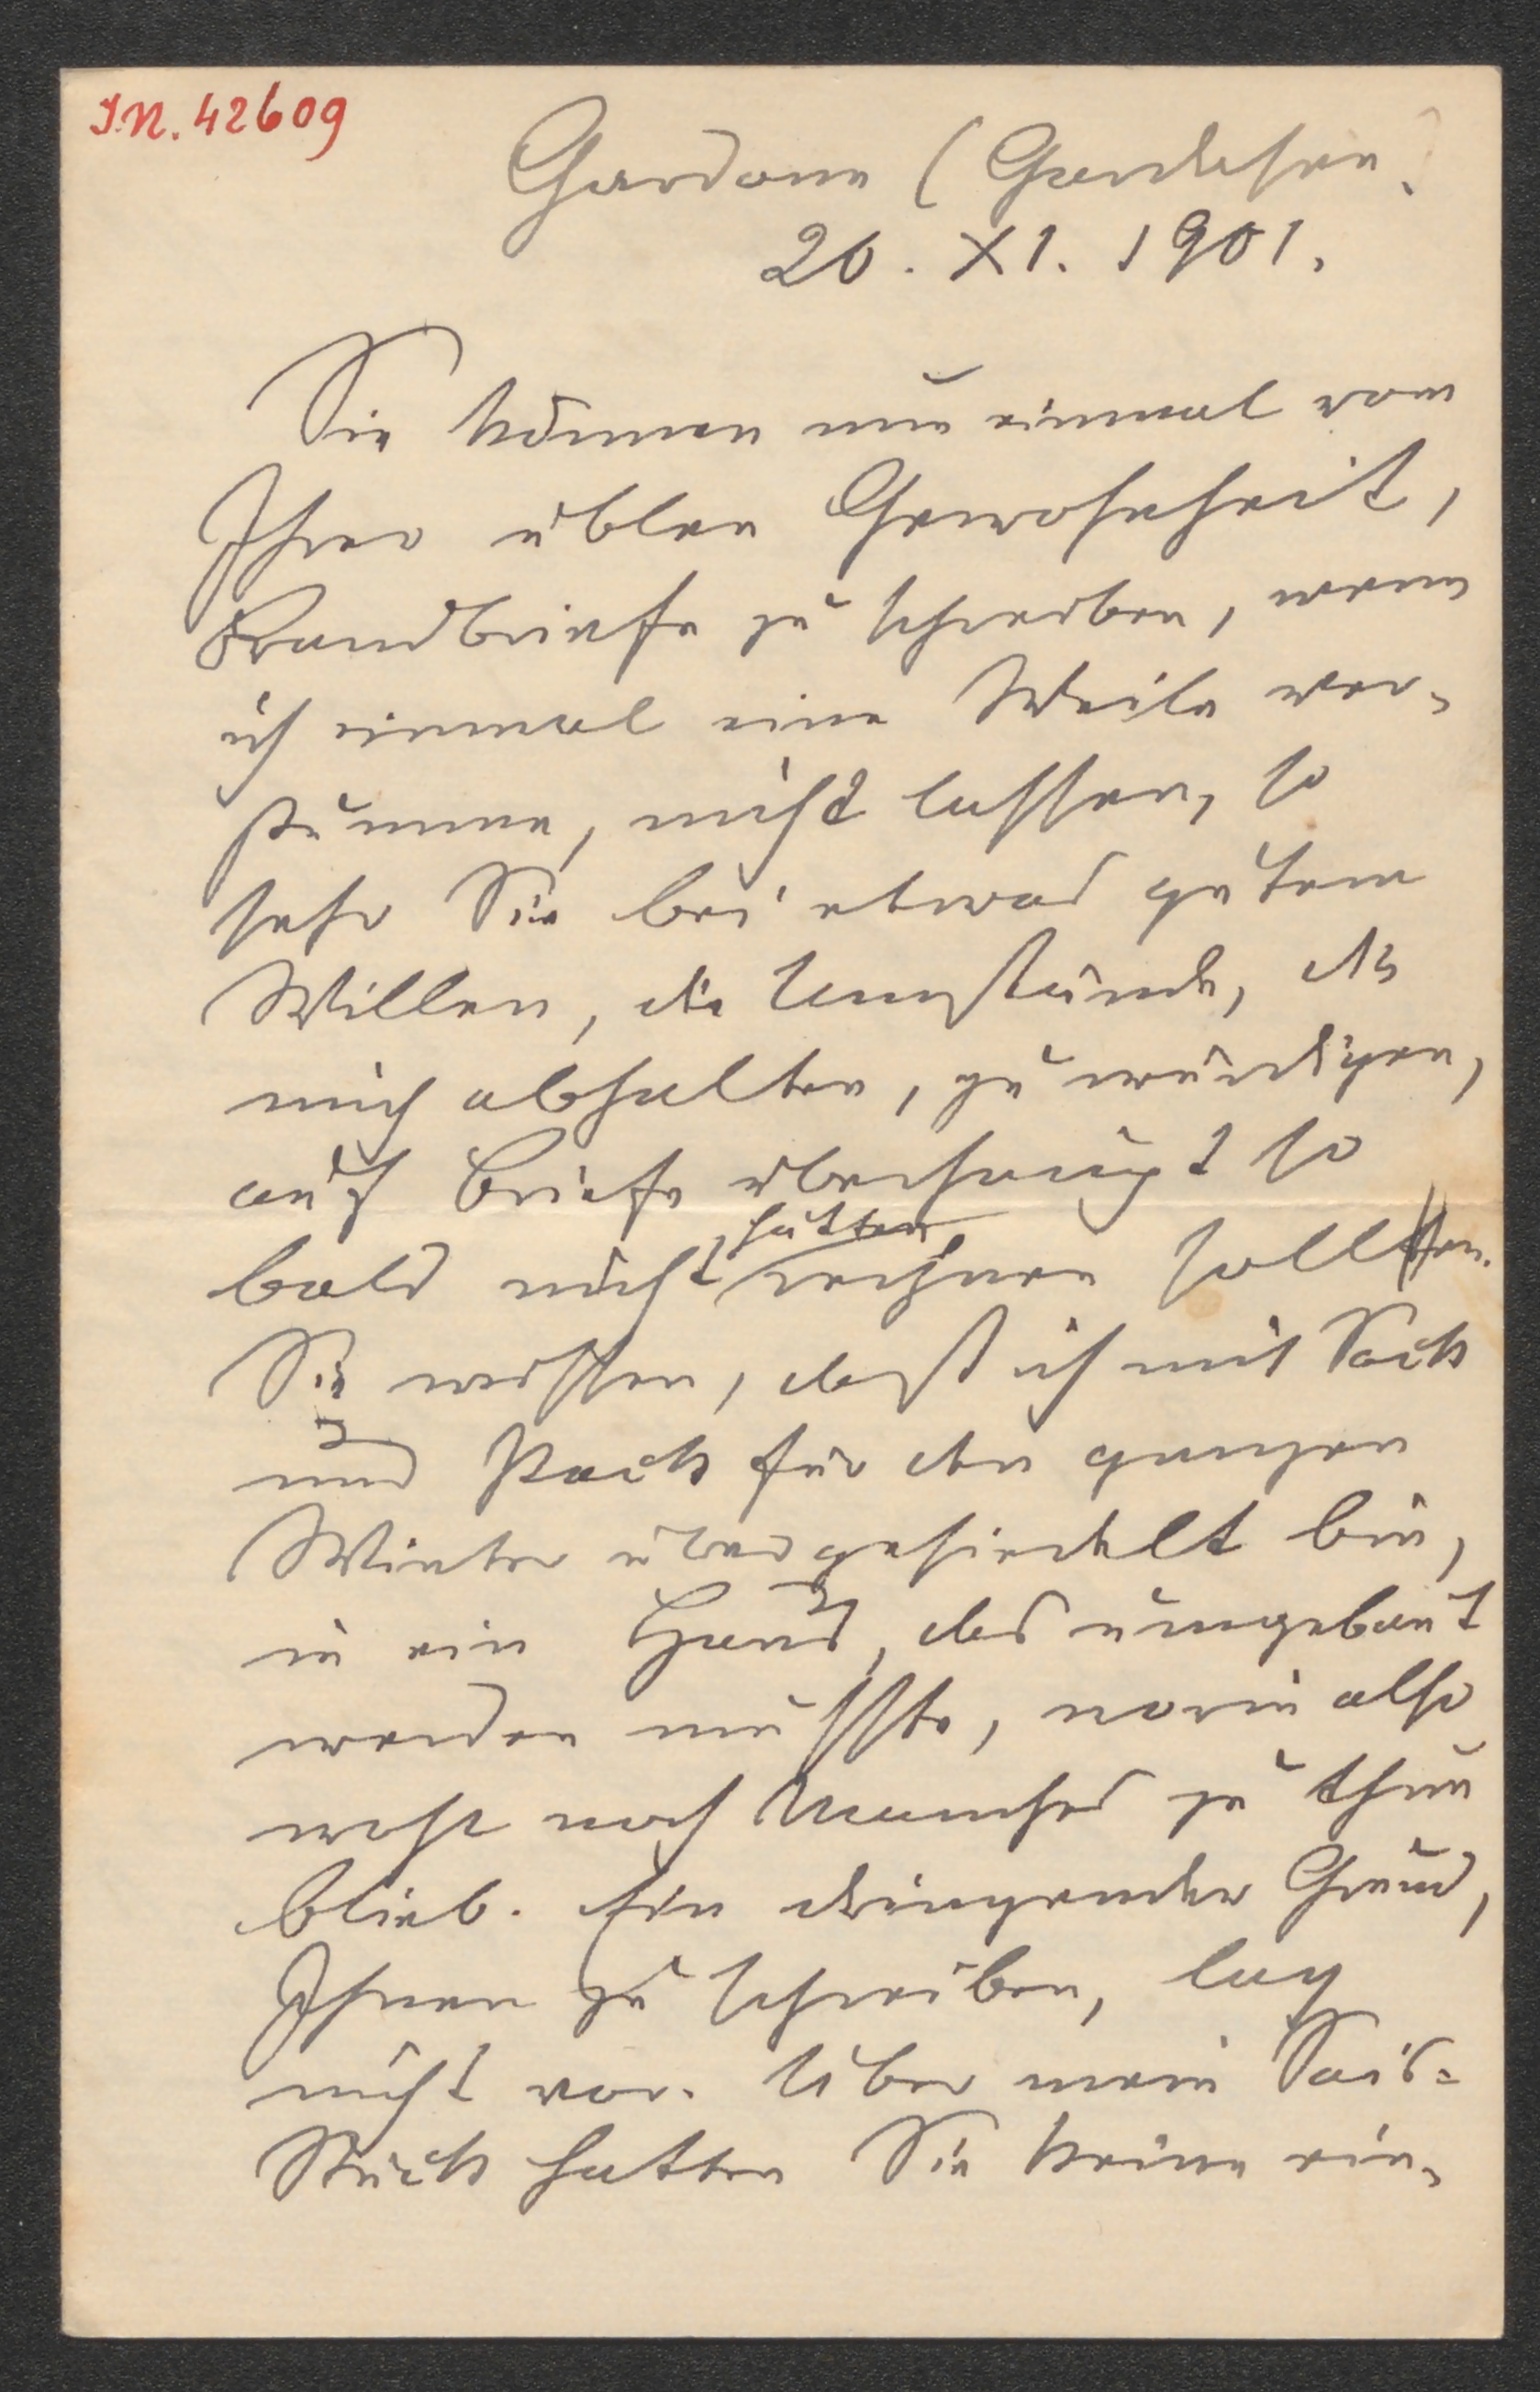 I.N. 42609
Gardone (Gardasee.
26. XI. 1901.
Sie können nun einmal von
Ihrer üblen Gewohnheit,
Brandbriefe zu schreiben, wenn
ich einmal eine Weile ver-
stumme, nicht lassen, so
sehr Sie bei etwas gutem
Willen, die Umstände, die
mich abhalten, zu würdigen,
auf Briefe überhaupt so
bald nicht hätten rechnen sollen.
Sie wissen, dass ich mit Sack
und Pack für den ganzen
Winter übergesiedelt bin,
in ein Haus, das umgebaut
werden musste, worin also
wohl noch Manches zu thun
blieb. Ein dringender Grund,
Ihnen zu schreiben, lag
nicht vor. Über mein
Stück hatten Sie keine ein-